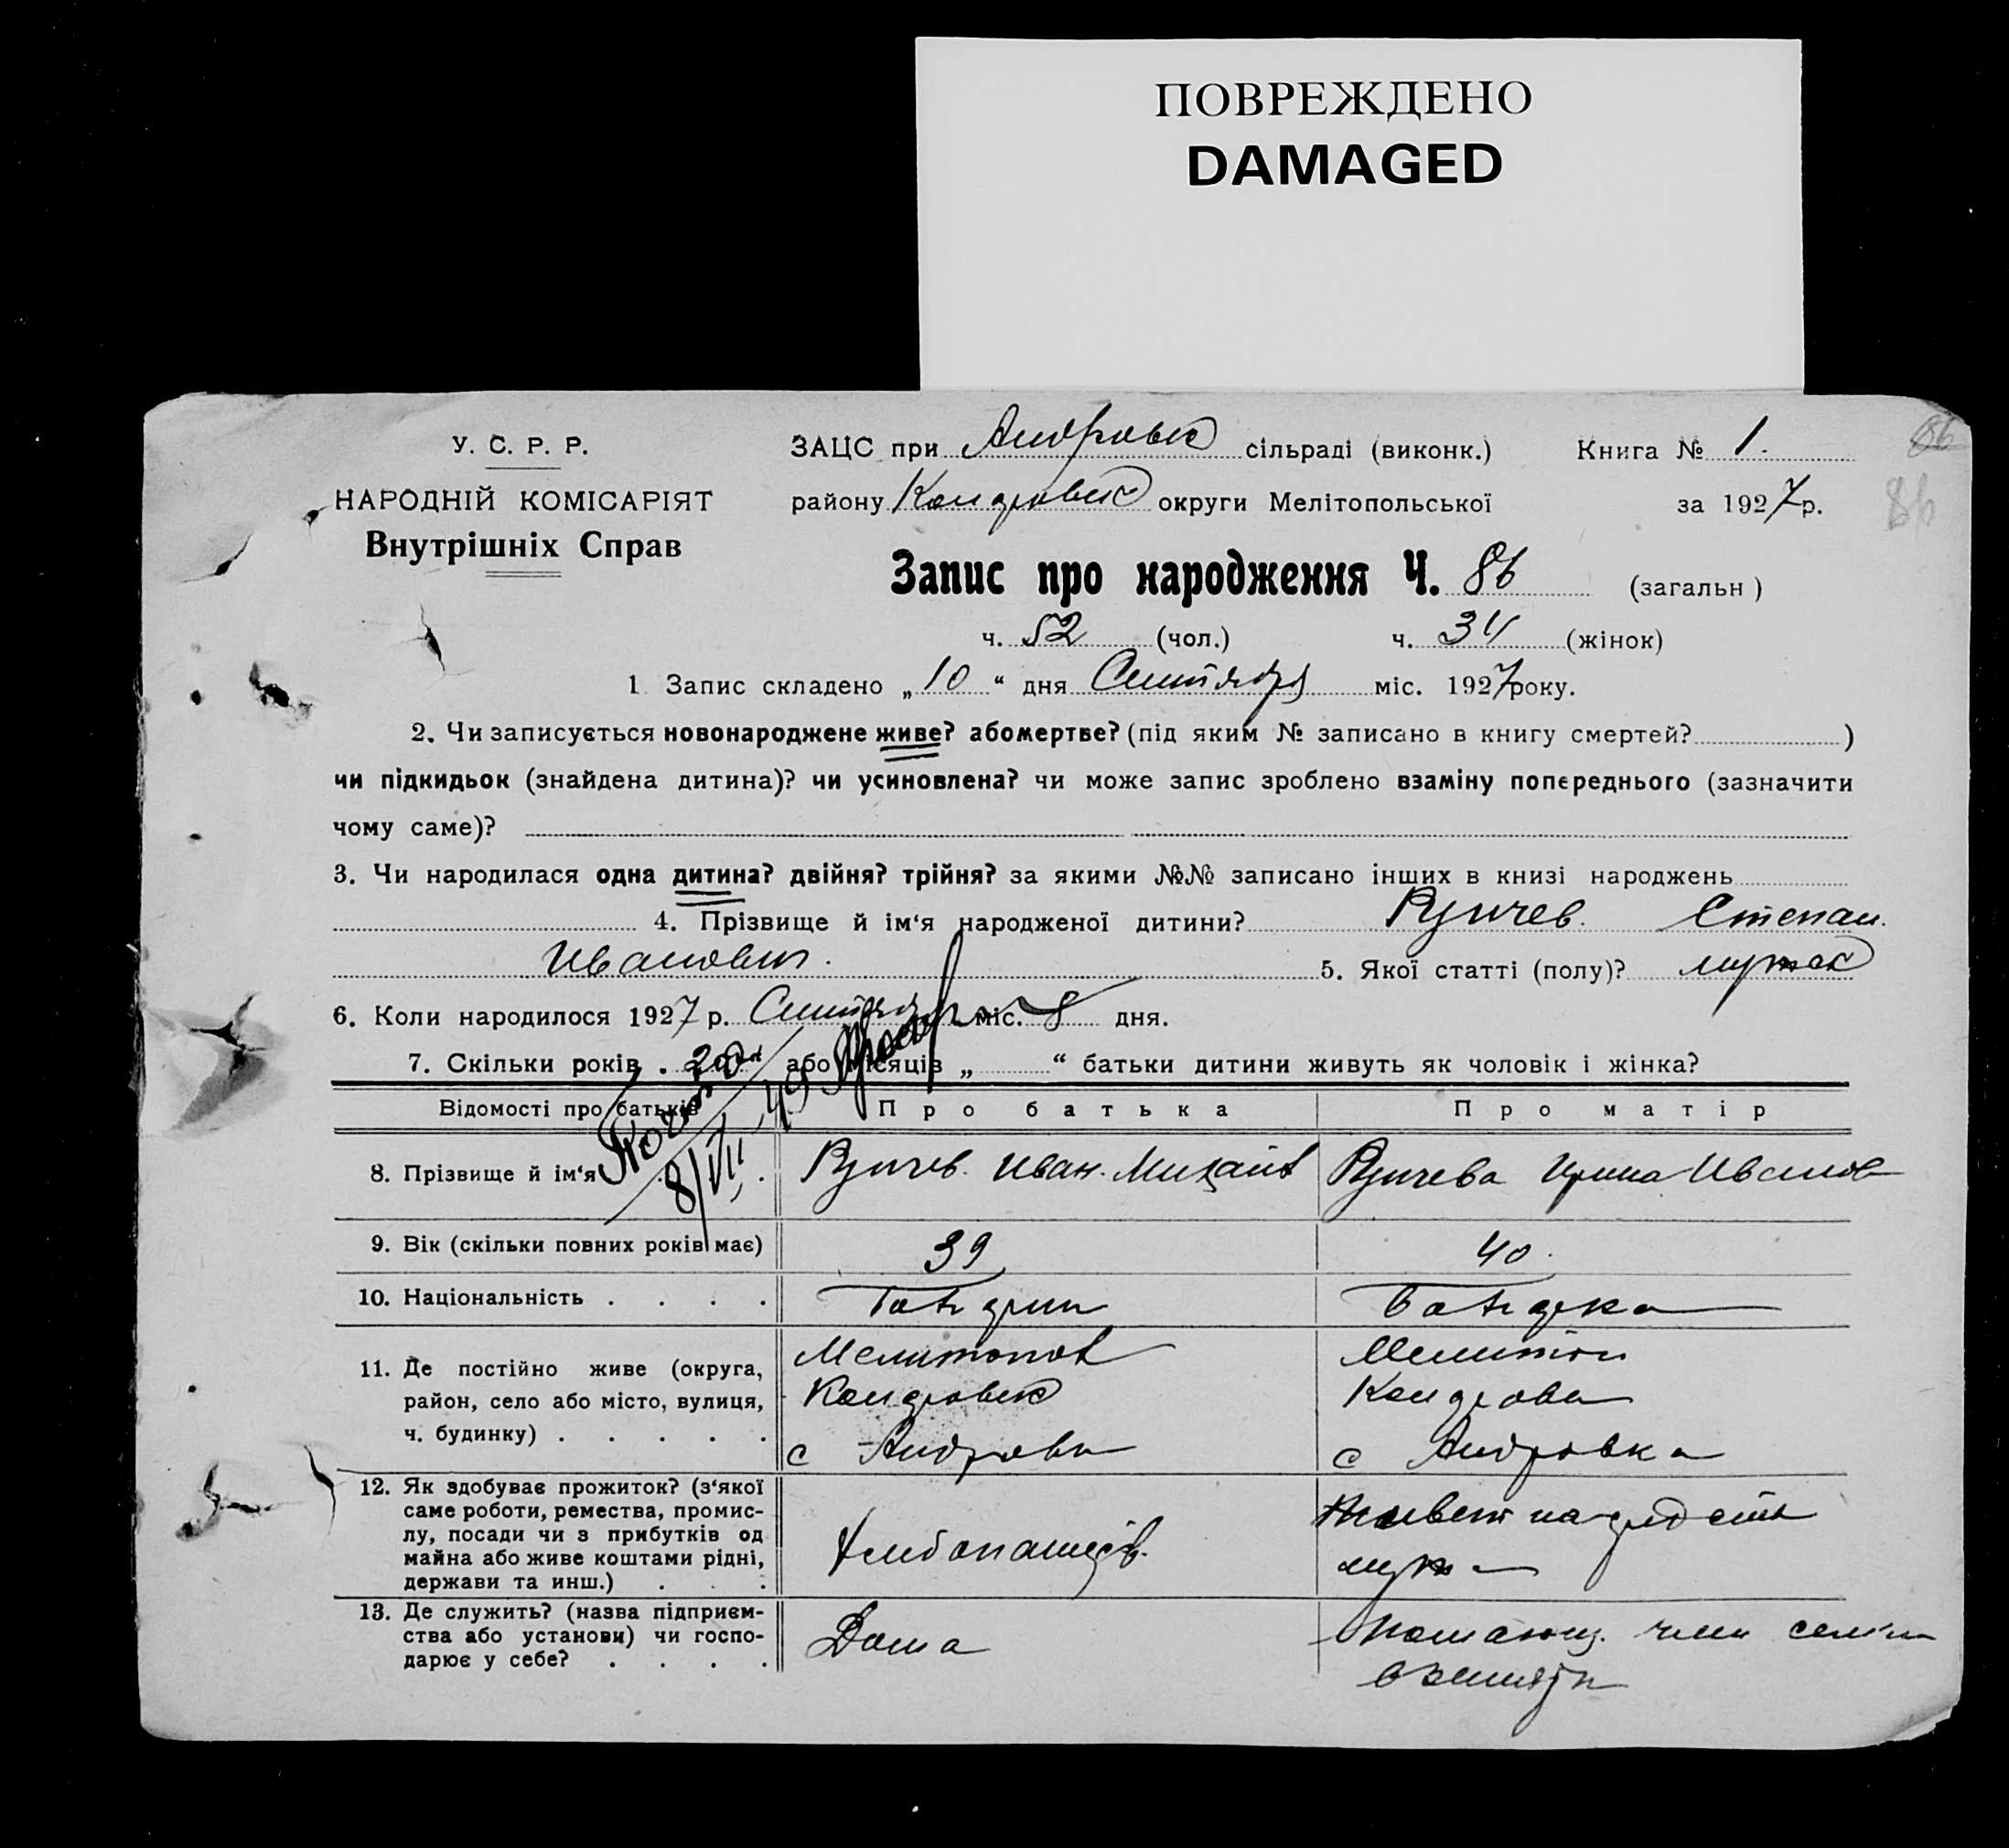 ПОВРЕЖДЕНО
DAMAGED
У. С. Р. Р.
НАРОДНІЙ КОМІСАРІЯТ
Внутрішніх Справ
ЗАЦС при Андровск сільраді (виконк.) Книга № 1.
району округи Мелітопольської за 1927 р.
86
86
Запис про народження Ч. 86 (загальн)
ч. 52 (чол.) ч. 34 (жінок)
1 Запис складено „10“ дня Сентября міс. 1927 року.
2. Чи записується новонароджене живе? або мертве? (під яким № записано в книгу смертей? )
чи підкидьок (знайдена дитина)? чи усиновлена? чи може запис зроблено взаміну попереднього (зазначити
чому саме)?
3. Чи народилася одна дитина? двійня? трійня? за якими №№ записано інших в книзі народжень
4. Прізвище й ім‘я народженої дитини? Степан.
Иванович. 5. Якої статті (полу)? мужск
6. Коли народилося 1927 р. Сентября міс. 8 дня.
7. Скільки років 20 або місяців „ “ батьки дитини живуть як чоловік і жінка?
8/VII
Відомості про батьків Про батька Про матір
8. Прізвище й ім‘я Иван. Михайл Ирина Иванов
9. Вік (скільки повних років має) 39 40.
10. Національність
11. Де постійно живе (округа, район, село або місто, вулиця, ч. будинку)
Мелитопол Мелитоп
с Андровк с Андровка
12. Як здобуває прожиток? (з‘якої саме роботи, ремества, промислу, посади чи з прибутків од майна або живе коштами рідні, держави та инш.)
Хлебопашец. Живет на средств
муж
13. Де служить? (назва підприємства або установи) чи господарює у себе?
Дома Помающ. член семьи